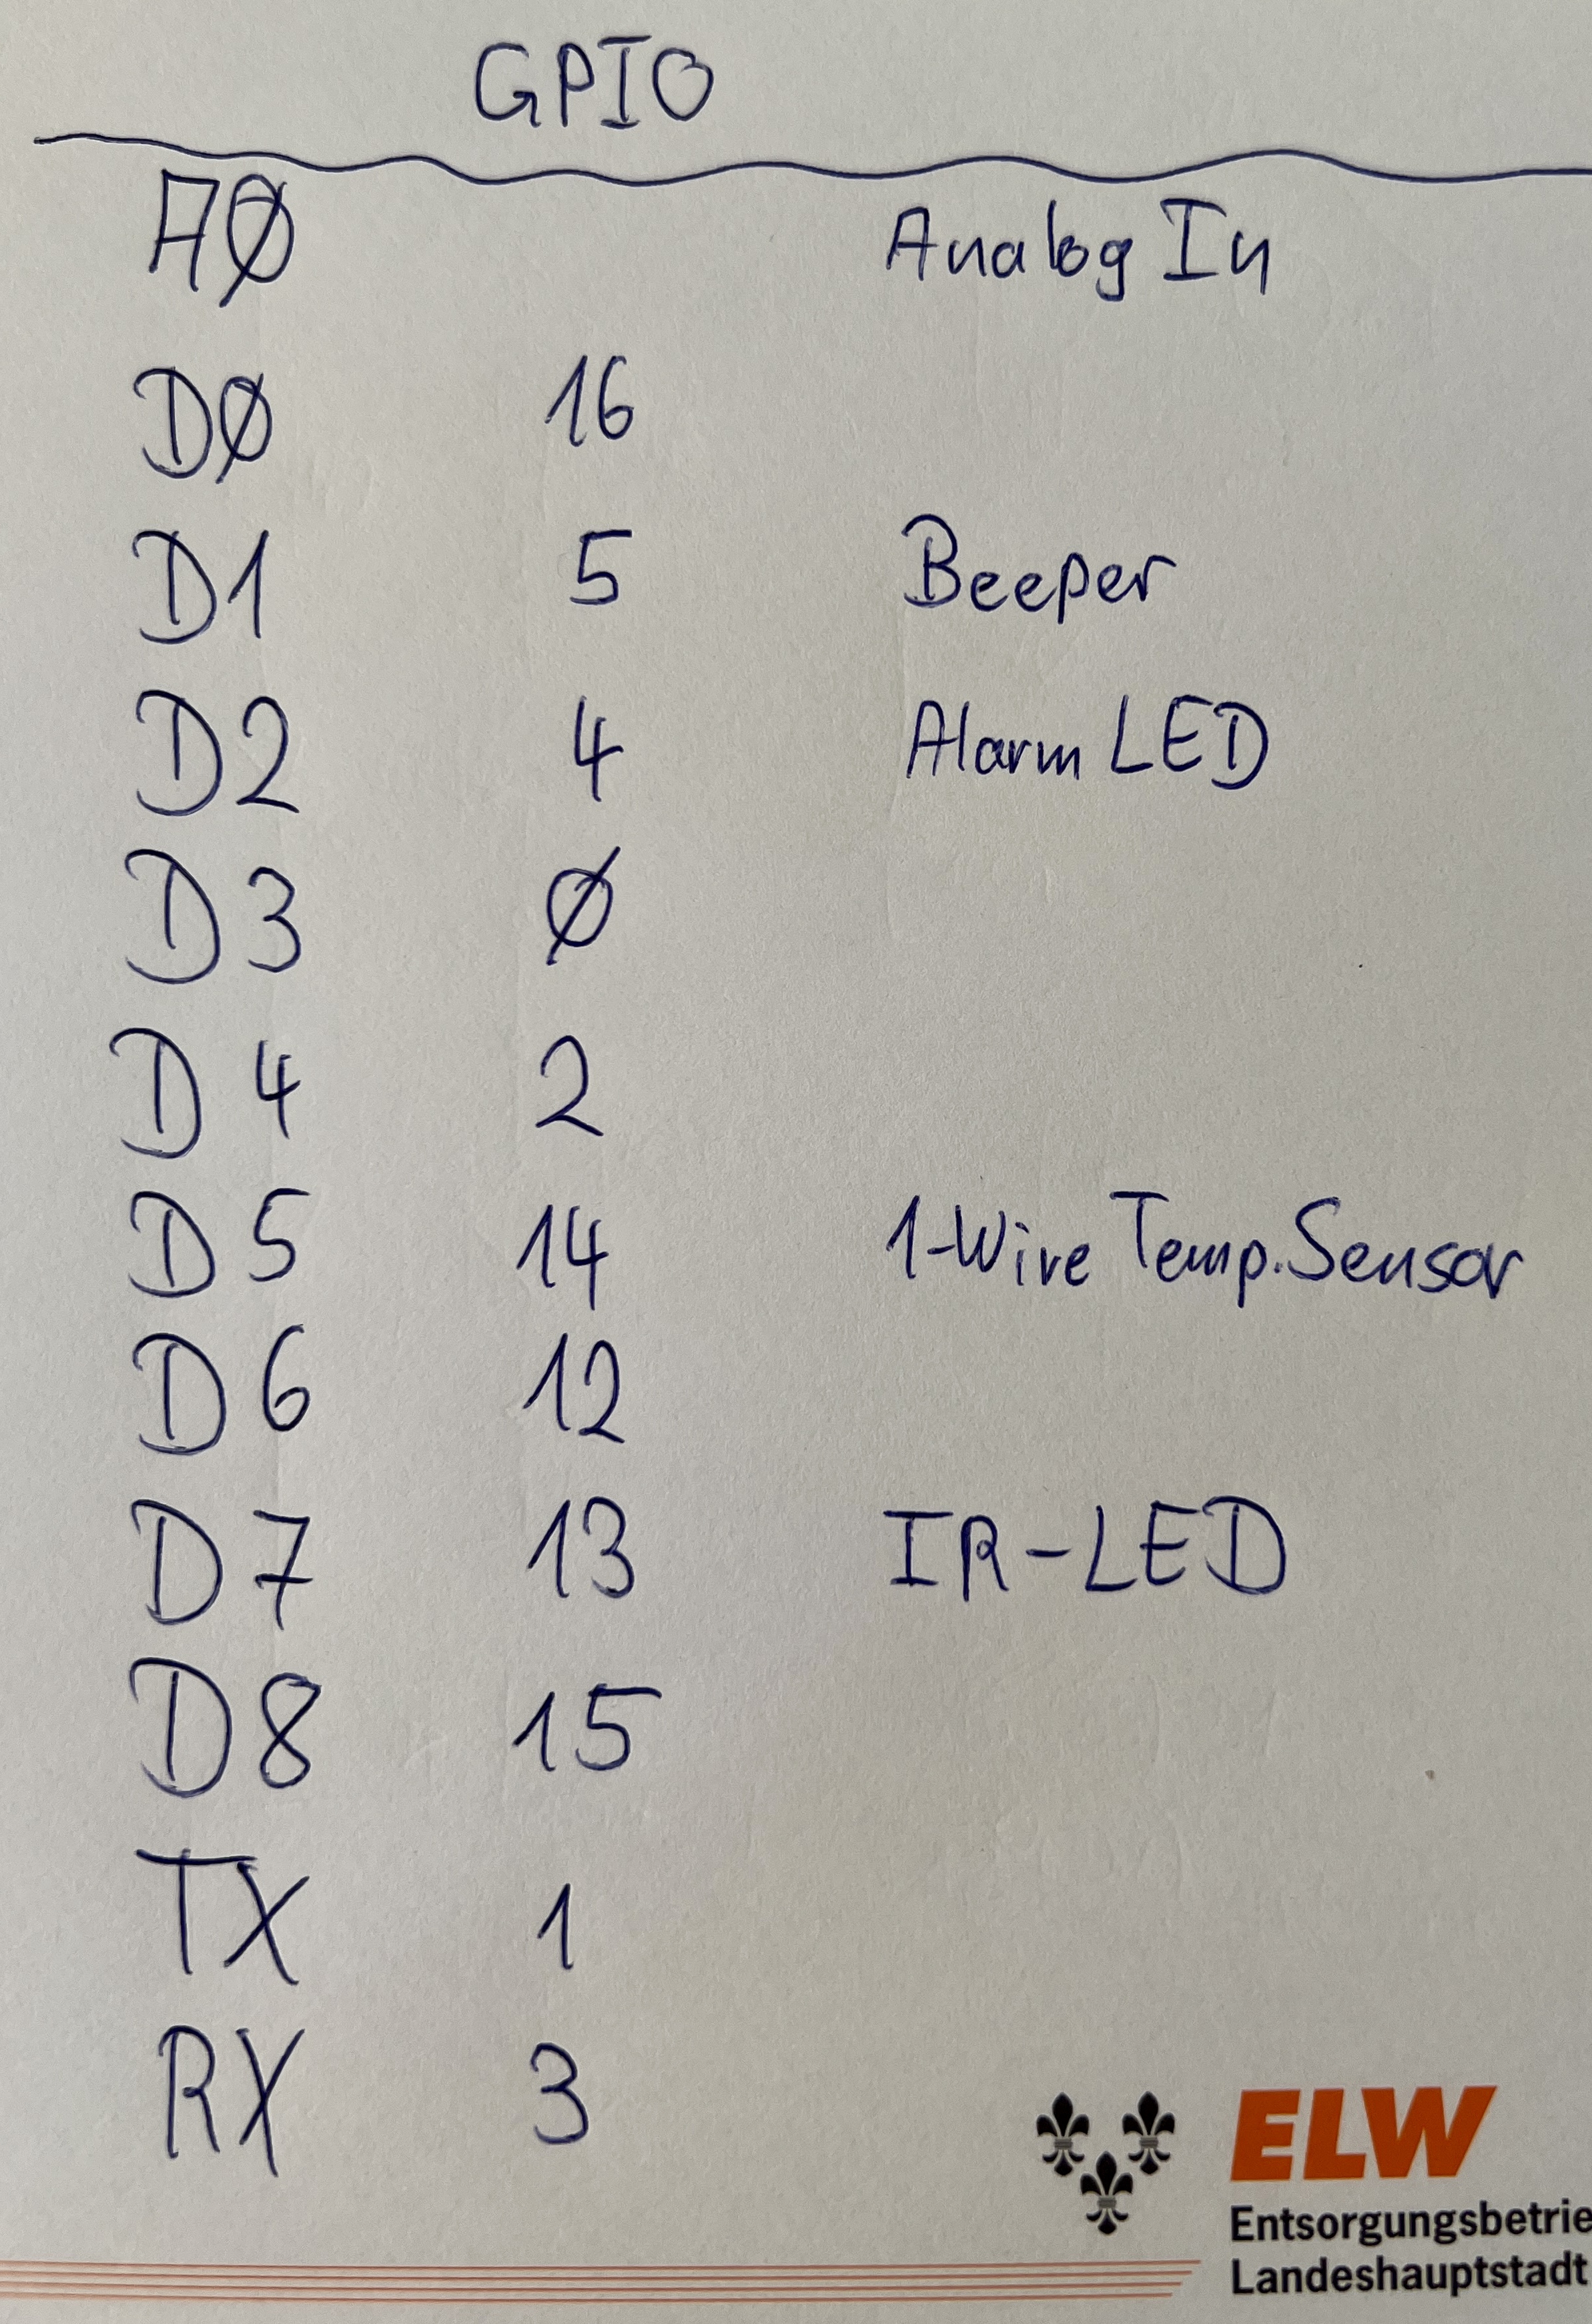 GPIO
AØ Analog In
DØ 16
D1 5 Beeper
D2 4 Alarm LED
D3 Ø
D4 2
D5 14 1-Wire Temp.Sensor
D6 12
D7 13 IR-LED
D8 15
TX 1
RX 3
ELW
Entsorgungsbetrie
Landeshauptstadt